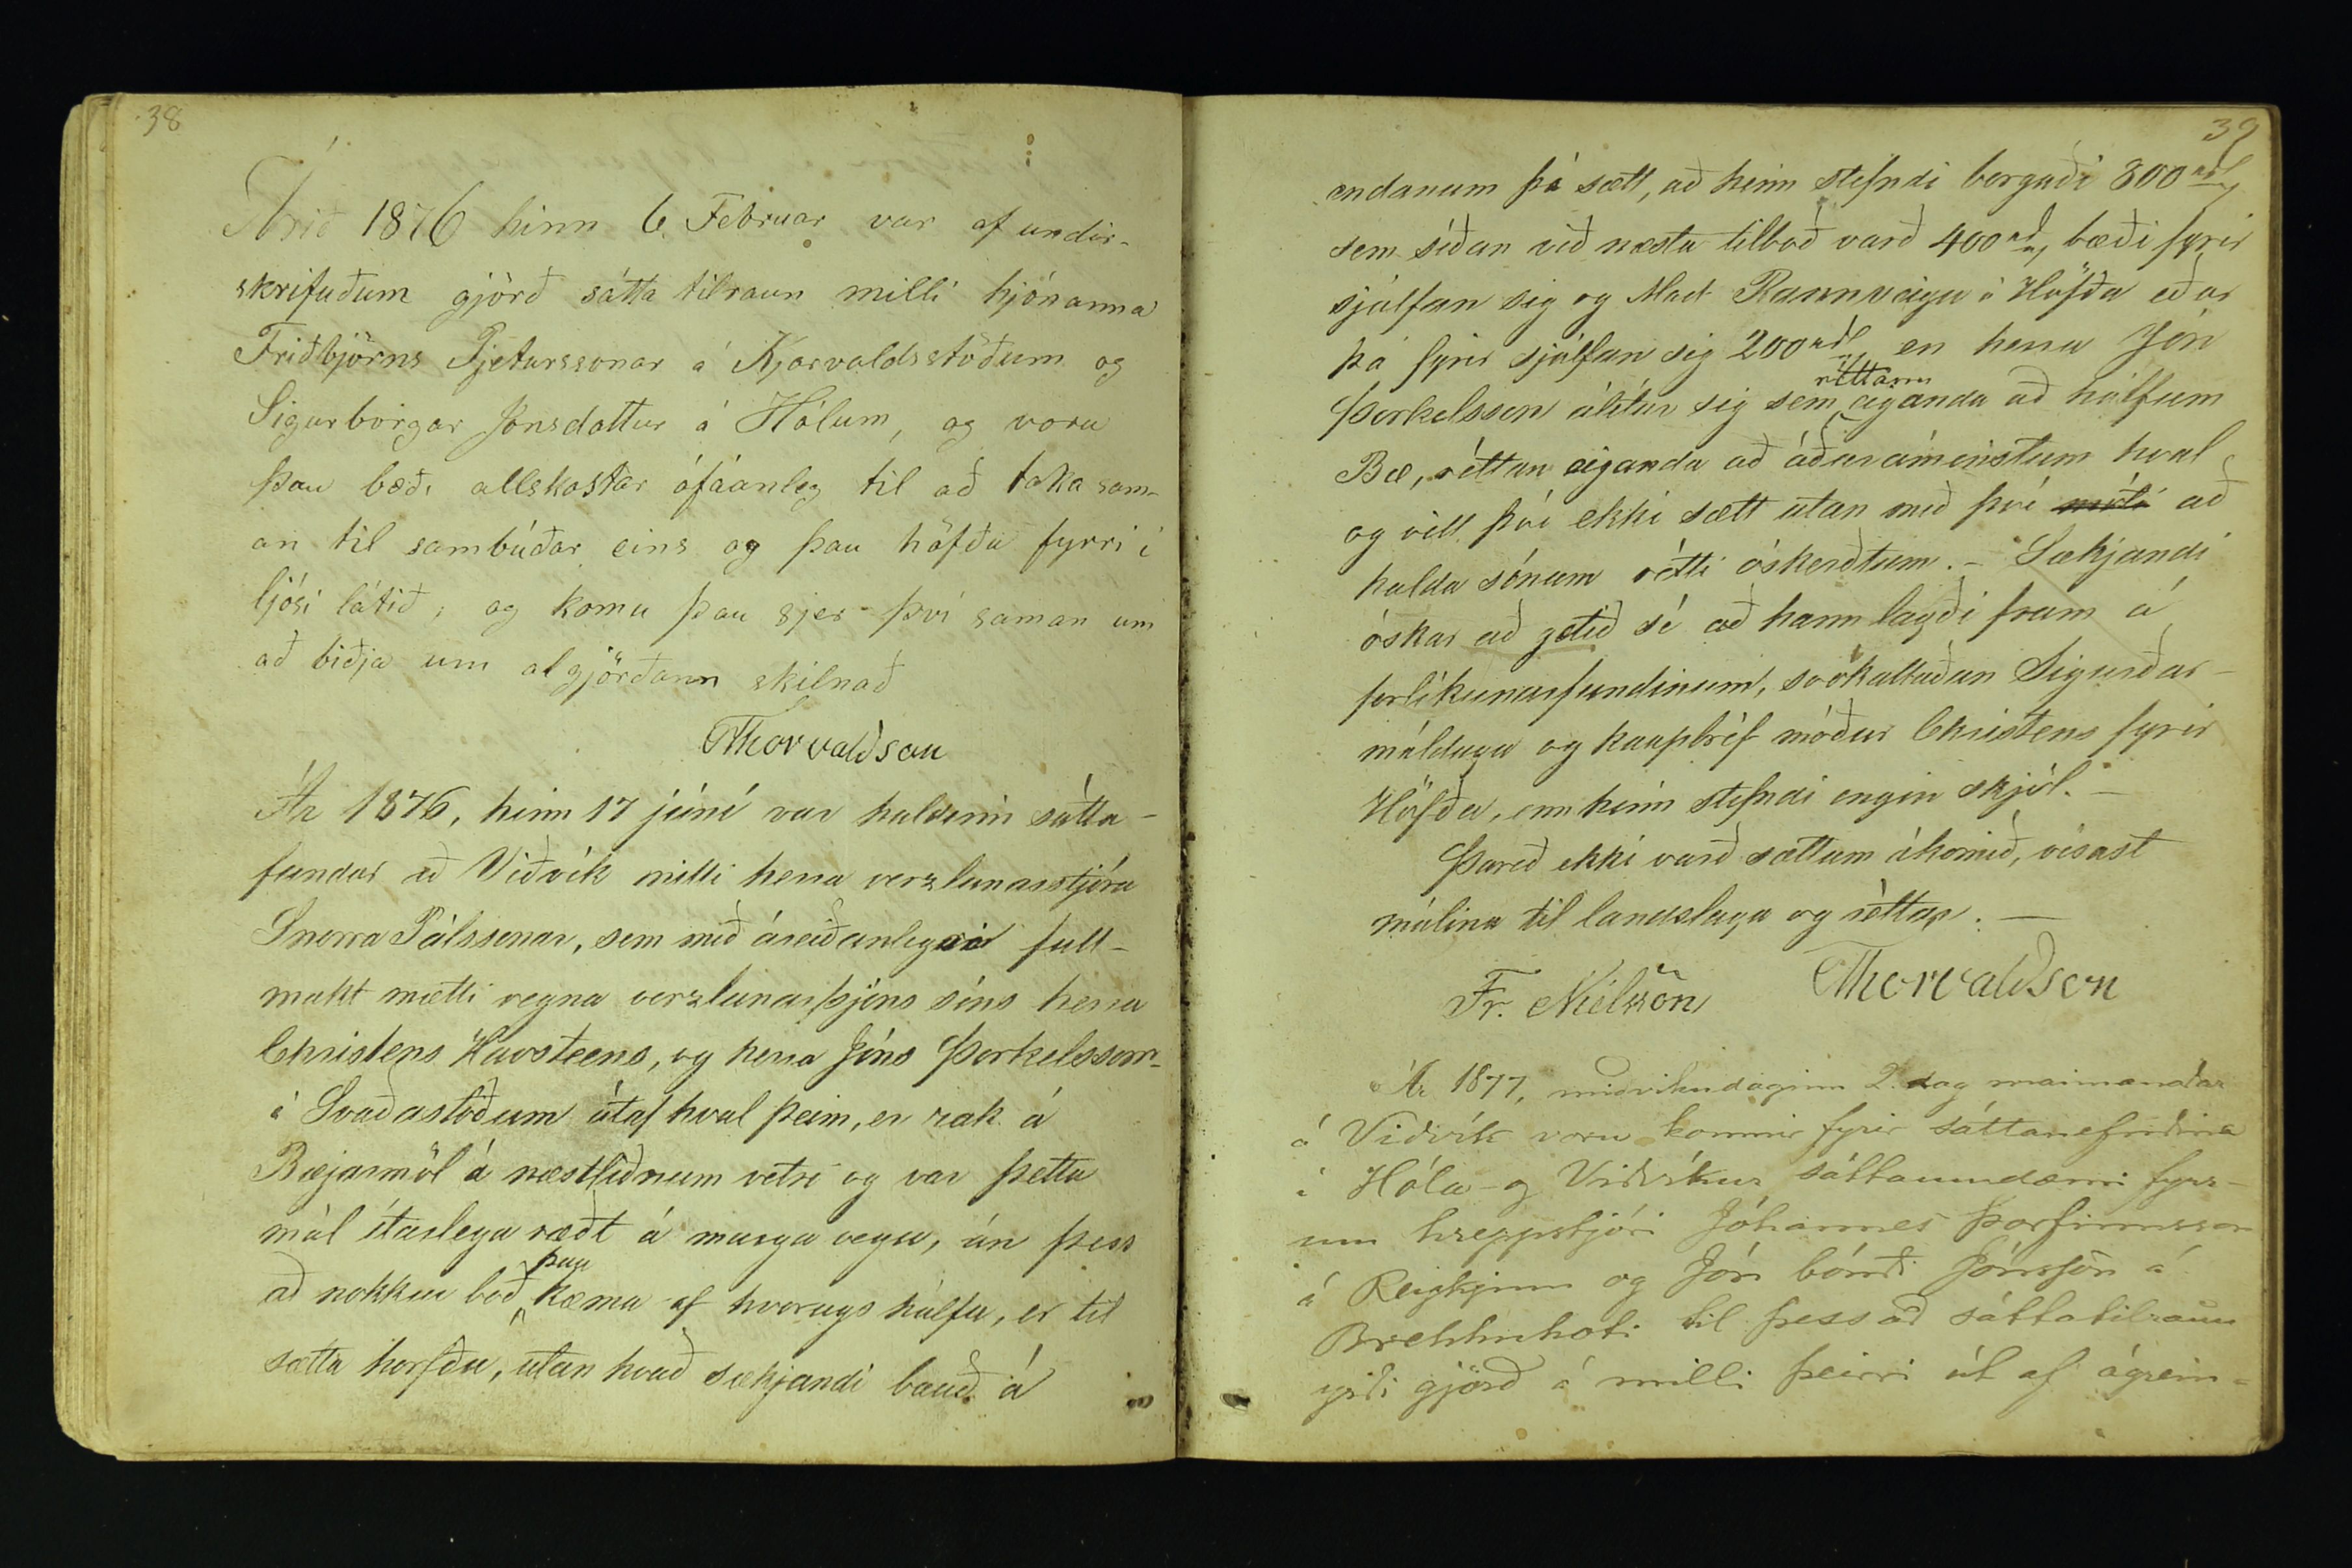 38
Árið 1876 hinn 6 Februar var af undir-
skrifuðum gjörð sátta tilraun milli hjónanna
Friðbjörns Pjeturssonar á Kjarvaldsstöðum og
Sigurborgar Jónsdottur á Hólum, og voru
þau bæði allskostar ófáanleg til að taka sam-
an til sambúðar eins og þau höfðu fyrri í
ljósi látið; og komu þau sjer því saman um
að biðja um algjörðann skilnað
Thorvaldson
Ár 1876, hinn 17 júní var haldinn sátta-
fundur að Viðvík milli herra verzlunarstjóra
Snorra Pálssonar, sem með áreiðanlegri full-
makt mætti vegna verzlunarþjóns síns herra
Christens Havsteens, og herra Jóns Þorkelsson-
á Svaðastöðum útaf hval þeim, er rak á
Bæjarmöl á næstliðnum vetri og var þetta
mál ítarlega rædt á marga vegu, án þess
að nokkur boð þau kæmu af hvorugs hálfu, er til
sætta horfðu, utan hvað sækjandi bauð á
39
endanum þá sætt, að hinn stefndi borgaði 800 rdl
sem síðan við næsta tilboð varð 400 rd, bæði fyrir
sjálfan sig og Mad Rannveigu á Höfða eðar
þá fyrir sjálfan sig 200 rdl, en herra Jón
Þorkelsson álítur sig sem réttann eiganda að hálfum
Bæ, réttan eiganda að áðuráminstum hval
og vill því ekki sætt utan með því móti að
halda sónum rétti óskerðtum. - Sækjandi
óskar að getið sé að hann lagði fram á
forlíkunarfundinum, svokallaðan Sigurðar-
máldaga og kaupbréf móður Christens fyrir
Höfða, enn hinn stefndi engin skjöl. -
Þareð ekki varð sættum ákomið, vísast
málinu til landslaga og réttar. -
Fr. Níelsson Thorvaldson
Ár 1877, miðvikudaginn 2. dag maimánaðar
á Viðvík voru komnir fyrir sáttanefndina
í Hóla- og Viðvíkur sáttaumdæmi fyrr-
um hreppstjóri Jóhannes Þorfinnsson
á Reykjum og Jón bóndi Jónsson á
Brekkukoti til þess að sáttatilraun
yrði gjörð á milli þeirri út af ágrein-